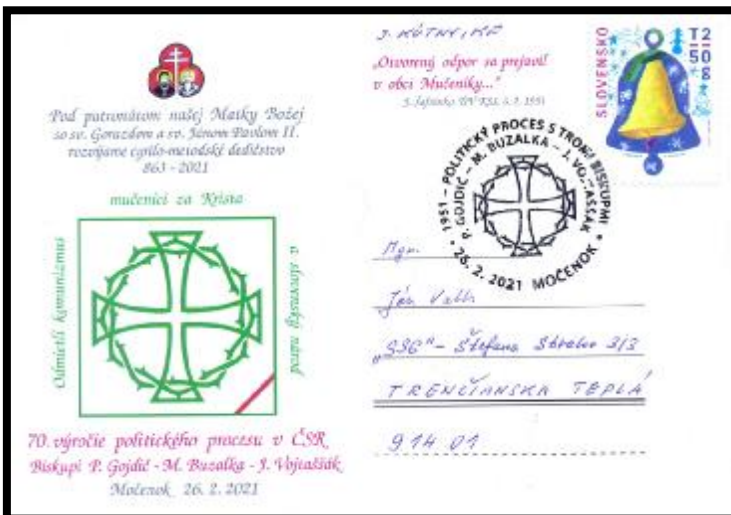 Pod patronátom našej Matky Božej
so sv. Gorazdom a sv. Jánom Pavlom II.
rozvíjame cyrilo-metodské dedičstvo
863 - 2021
mučeníci za Krista
Odmietli komunizmus
v slovenský národ
70. výročie politického procesu v ČSR
Biskupi P. Gojdič - M. Buzalka - J. Vojtaššák
Močenok 26. 2. 2021
„Otvorený odpor sa prejavil
v obci Mučeníky..."
SLOVENSKO
T2 50g
1951 - POLITICKÝ PROCES S TROMI BISKUPMI
P. GOJDIČ - M. BUZALKA - J. VOJTAŠŠÁK
26. 2. 2021 MOČENOK
Mgr.
Ján
„SSG" - Štefana 3/3
TRENČIANSKA TEPLÁ
914 01